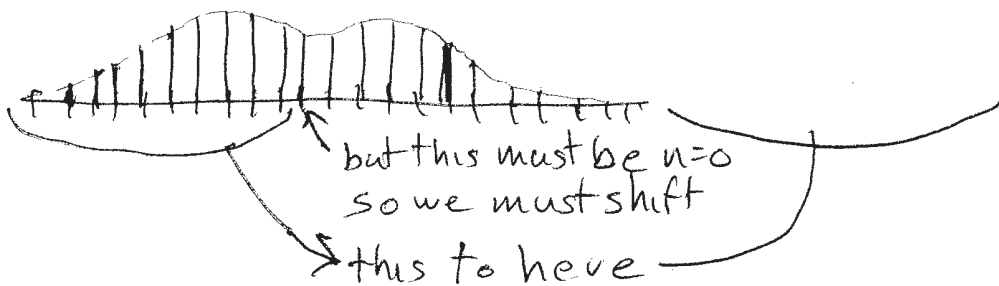 but this must be n=0
so we must shift
this to here